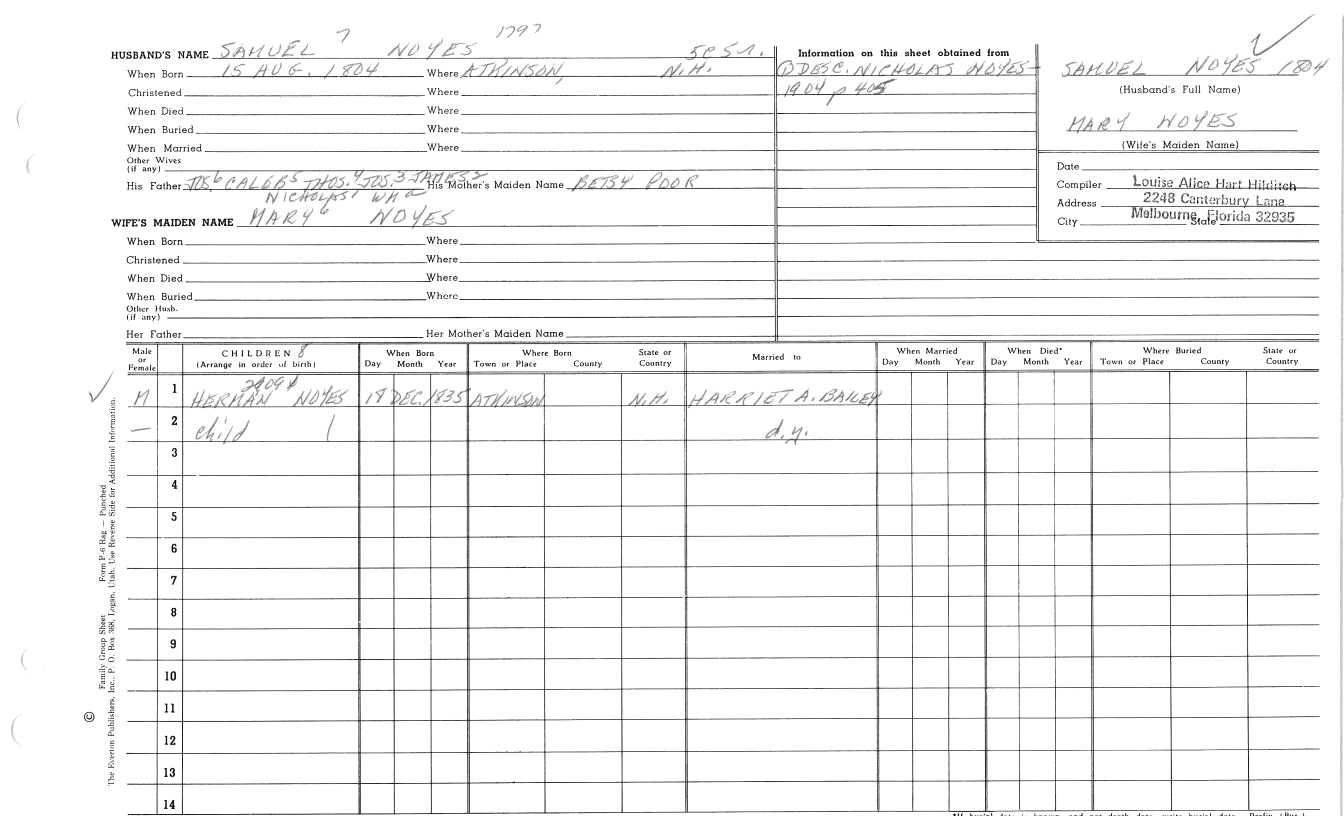 7 1797
HUSBAND'S NAME SAMUEL NOYES 5C S1.
When Born 15 AUG. 1804 Where ATKINSON, N.H.
Christened Where
When Died Where
When Buried Where
When Married Where
Other Wives
(if any)
His Father JOS.6 CALEB5 THOS.4 JOS.3 JAMES2 His Mother's Maiden Name BETSY POOR
NICHOLAS1 Wm a
WIFE'S MAIDEN NAME MARY6 NOYES
When Born Where
Christened Where
When Died Where
When Buried Where
Other Husb.
(if any)
Her Father Her Mother's Maiden Name
Information on this sheet obtained from
① DESC. NICHOLAS NOYES-
1904 p 405
SAMUEL NOYES 1804
(Husband's Full Name)
MARY NOYES
(Wife's Maiden Name)
Date
Compiler Louise Alice Hart Hilditch
Address 2248 Canterbury Lane
City Melbourne, Florida 32935 State
Male or Female CHILDREN 8 (Arrange in order of birth) When Born Day Month Year Where Born Town or Place County State or Country Married to When Married Day Month Year When Died* Day Month Year Where Buried Town or Place County State or Country
M 1 HERMAN NOYES 18 DEC. 1835 ATKINSON N.H. HARRIET A. BAILEY
— 2 child 1 d.y.
3
4
5
6
7
8
9
10
11
12
13
14
© The Everton Publishers, Inc., P. O. Box 368, Logan, Utah. Use Reverse Side for Additional Information.
Family Group Sheet Form P-6 Rag — Punched